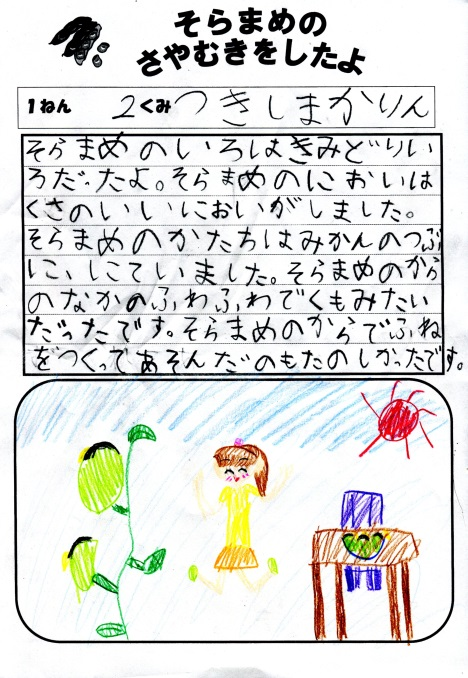 そらまめの
さやむきをしたよ
1ねん 2くみ つきしまかりん
そらまめのいろはきみどりい
ろだったよ。そらまめのにおいは
くさのいいにおいがしました。
そらまめのかたちはみかんのつぶ
に、にていました。そらまめのから
のなかのふわふわでくもみたい
だったです。そらまめのからでふね
をつくってあそんだのもたのしかったです。